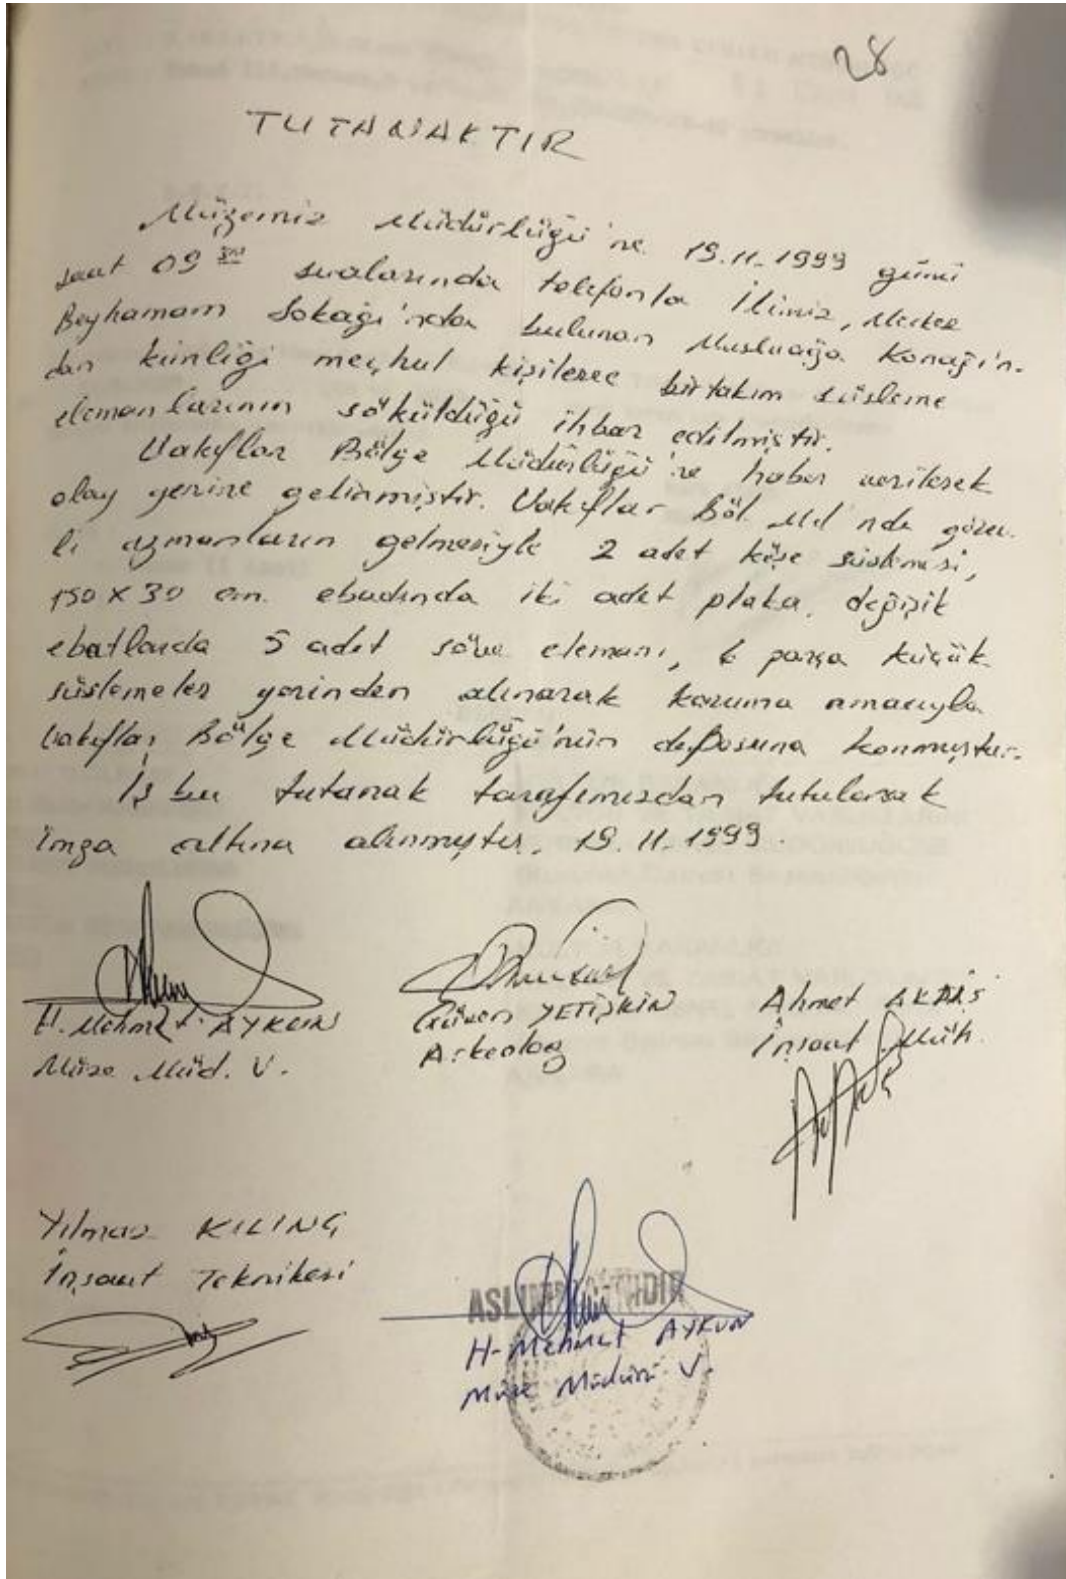 28
TUTANAKTIR
Müzemiz Müdürlüğü'ne 19.11.1999 günü
saat 09 sıralarında telefonla İlimiz, Merkez
Beyhamam Sokağı'nda bulunan Musluağa Konağı'n-
dan kimliği meçhul kişilerce birtakım süsleme
elemanlarının söküldüğü ihbar edilmiştir.
Vakıflar Bölge Müdürlüğü'ne haber verilerek
olay yerine gelinmiştir. Vakıflar Böl. Md'nde görev-
li uzmanların gelmesiyle 2 adet köşe süslemesi,
150 x 30 cm. ebadında iki adet plaka, değişik
ebatlarda 5 adet söve elemanı, 6 parça küçük
süslemeler yerinden alınarak koruma amacıyla
Vakıflar Bölge Müdürlüğü'nün deposuna konmuştur.
İş bu tutanak tarafımızdan tutularak
imza altına alınmıştır. 19.11.1999.
H. Mehmet AYKUN
Müze Müd. V.
YETİŞKİN
Arkeolog
Ahmet AKTAŞ
İnşaat Müh.
Yılmaz KILINÇ
İnşaat Teknikeri
H. Mehmet AYKUN
Müze Müdürü V.